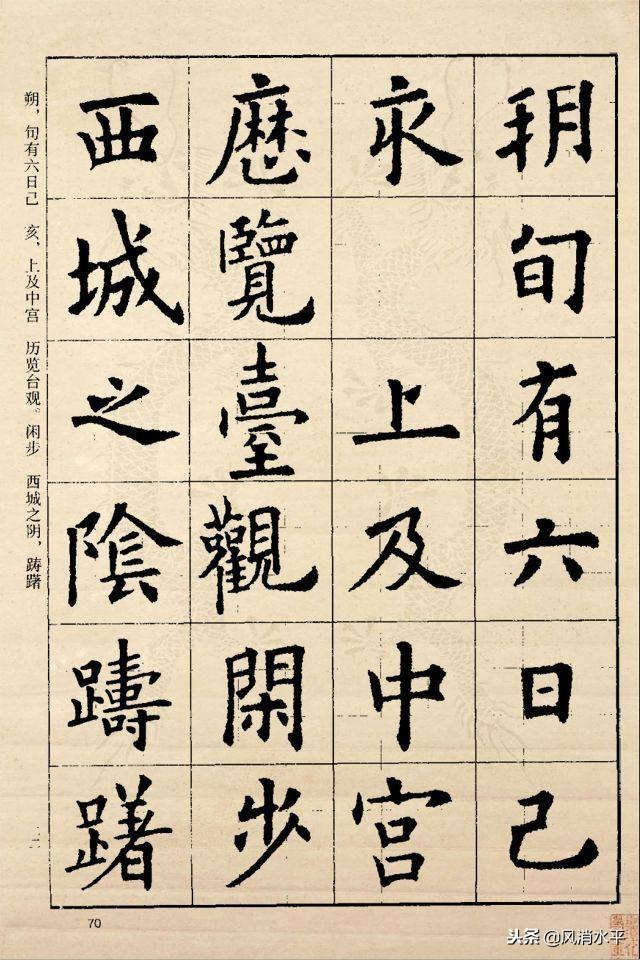 玥旬有六日己
亥上及中宫
歷覽臺觀閑步
西城之陰躊躇
朔，旬有六日己亥、上及中宫历览台观。闲步西城之阴，踌躇
70
头条@风消水平